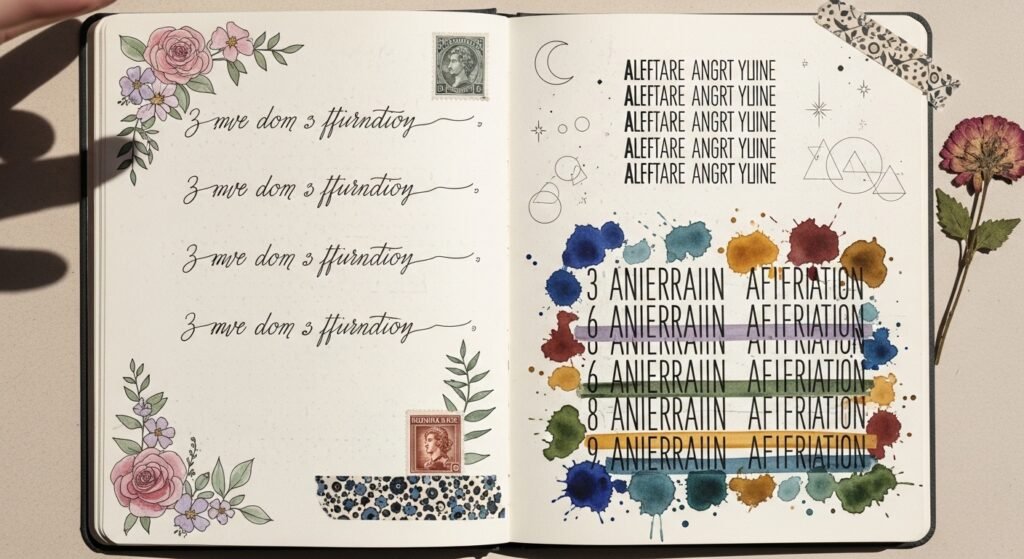 3 mve dom 3 ffurndioy
3 mve dom 3 ffurndioy
3 mve dom 3 ffurndioy
3 mve dom 3 ffurndioy
ALEFTARE ANGRT YUINE
ALEFTARE ANGRT YUINE
ALEFTARE ANGRT YUINE
ALEFTARE ANGRT YUINE
ALEFTARE ANGRT YUINE
3 ANIERRAIIN AFIFRIATION
6 ANIERRAIIN AFIFRIATION
ANIERRAIIN AFIFRIATION
6 ANIERRAIIN AFIFRIATION
8 ANIERRAIIN AFIFRIATION
9 ANIERRAIIN AFIFRIATION